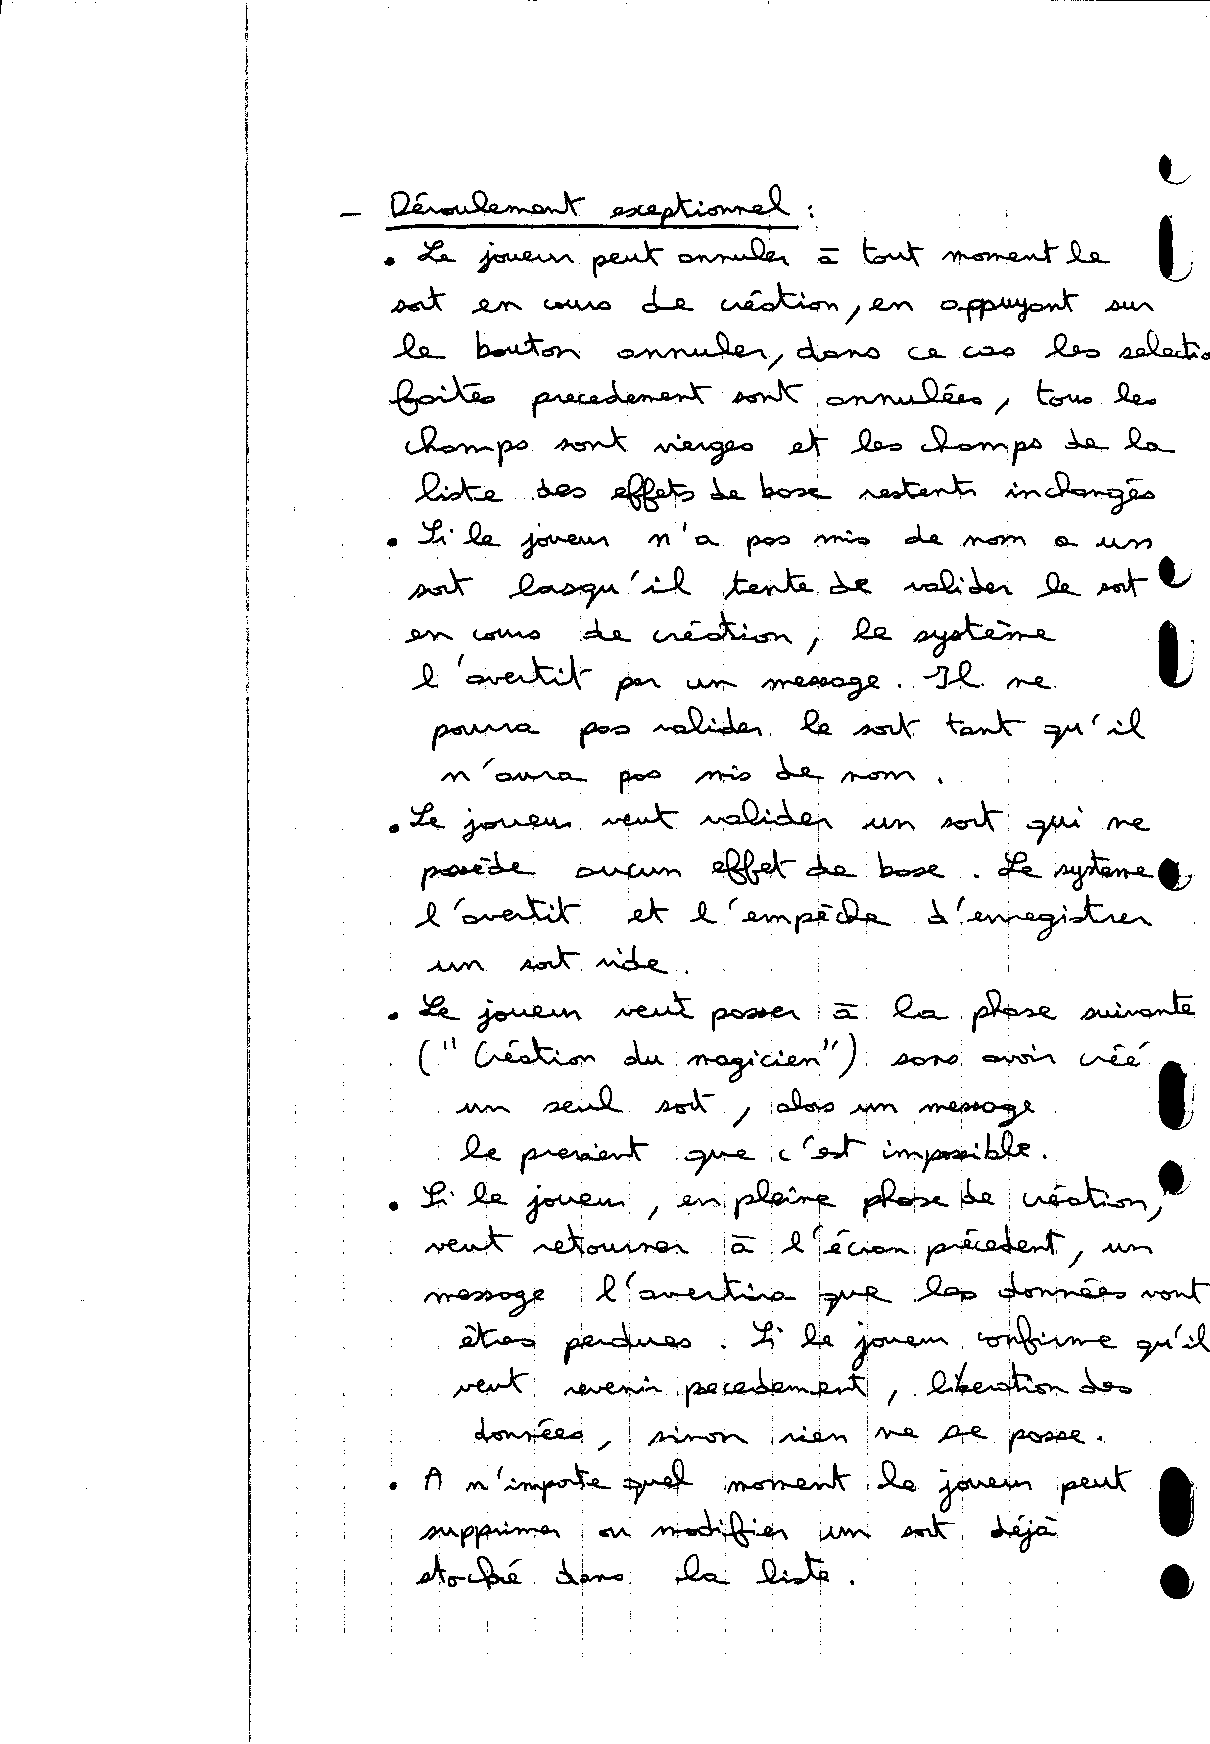 - Déroulement exceptionnel :
• Le joueur peut annuler à tout moment le
sort en cours de création, en appuyant sur
le bouton annuler, dans ce cas les selectio
faites precedement sont annulées, tous les
champs sont vierges et les champs de la
liste des effets de base restents inchangés
• Si le joueur n'a pas mis de nom a un
sort lorsqu'il tente de valider le sort
en cours de création, le système
l'avertit par un message. Il ne
pourra pas valider le sort tant qu'il
n'aura pas mis de nom.
• Le joueur veut valider un sort qui ne
possède aucun effet de base. Le systeme
l'avertit et l'empêche d'enregistrer
un sort vide.
• Le joueur veut passer à la phase suivante
("Création du magicien") sans avoir créé
un seul sort, alors un message
le previent que c'est impossible.
• Si le joueur, en pleine phase de création,
veut retourner à l'écran précedent, un
message l'avertira que les données vont
êtres perdues. Si le joueur confirme qu'il
veut revenir pecedement, liberation des
données, sinon rien ne se passe.
• A n'importe quel moment le joueur peut
supprimer ou modifier un sort déjà
stocké dans la liste.